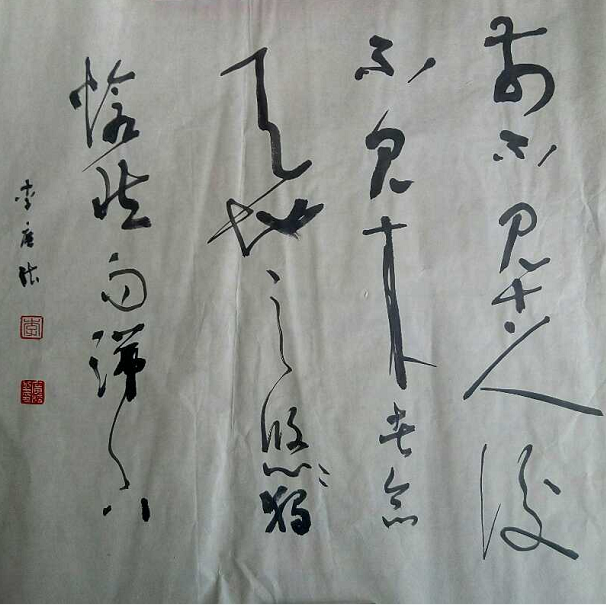 前不見古人後
不見来者念
天地之悠々獨
愴然而涕下
李